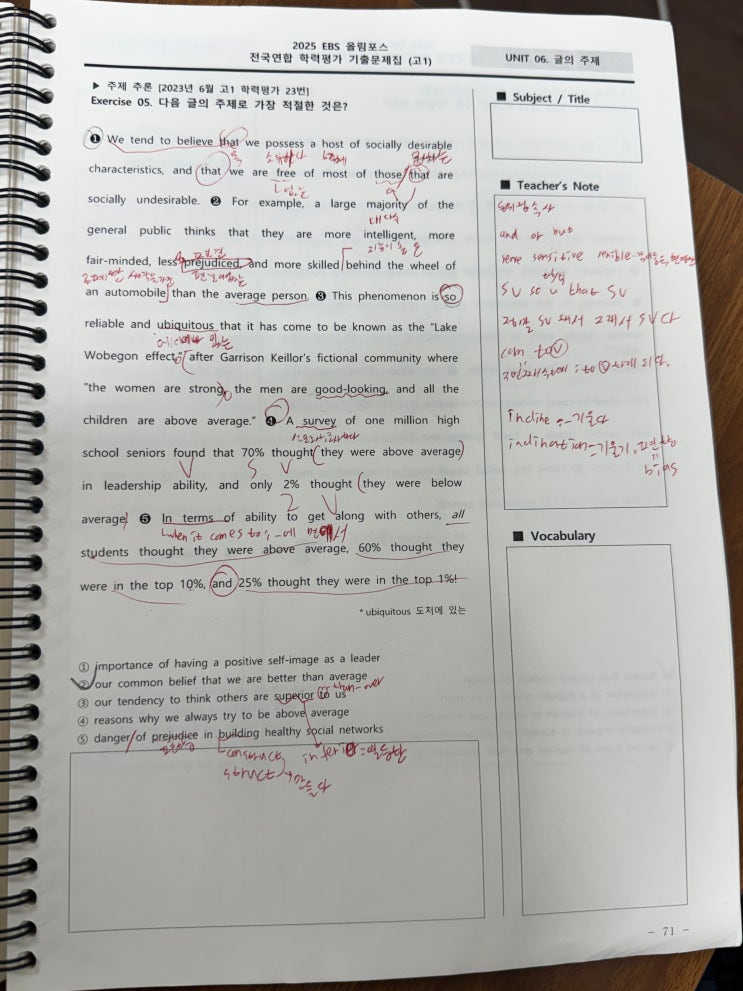 2025 EBS 올림포스
전국연합 학력평가 기출문제집 (고1)
UNIT 06. 글의 주제
▶ 주제 추론 [2023년 6월 고1 학력평가 23번]
Exercise 05. 다음 글의 주제로 가장 적절한 것은?
❶ We tend to believe that we possess a host of socially desirable
소유하다
characteristics, and that we are free of most of those that are
socially undesirable. ❷ For example, a large majority of the
대다수
general public thinks that they are more intelligent, more
fair-minded, less prejudiced, and more skilled behind the wheel of
an automobile than the average person. ❸ This phenomenon is so
reliable and ubiquitous that it has come to be known as the "Lake
Wobegon effect," after Garrison Keillor's fictional community where
"the women are strong, the men are good-looking, and all the
children are above average." ❹ A survey of one million high
school seniors found that 70% thought they were above average
V S V
in leadership ability, and only 2% thought they were below
average. ❺ In terms of ability to get along with others, all
when it comes to
students thought they were above average, 60% thought they
were in the top 10%, and 25% thought they were in the top 1%!
* ubiquitous 도처에 있는
① importance of having a positive self-image as a leader
② our common belief that we are better than average
③ our tendency to think others are superior to us
④ reasons why we always try to be above average
⑤ danger of prejudice in building healthy social networks
construct
만들다
■ Subject / Title
■ Teacher's Note
and or but
sense sensitive
SV so that SV
com to V
incline
기울다
bias
■ Vocabulary
- 71 -